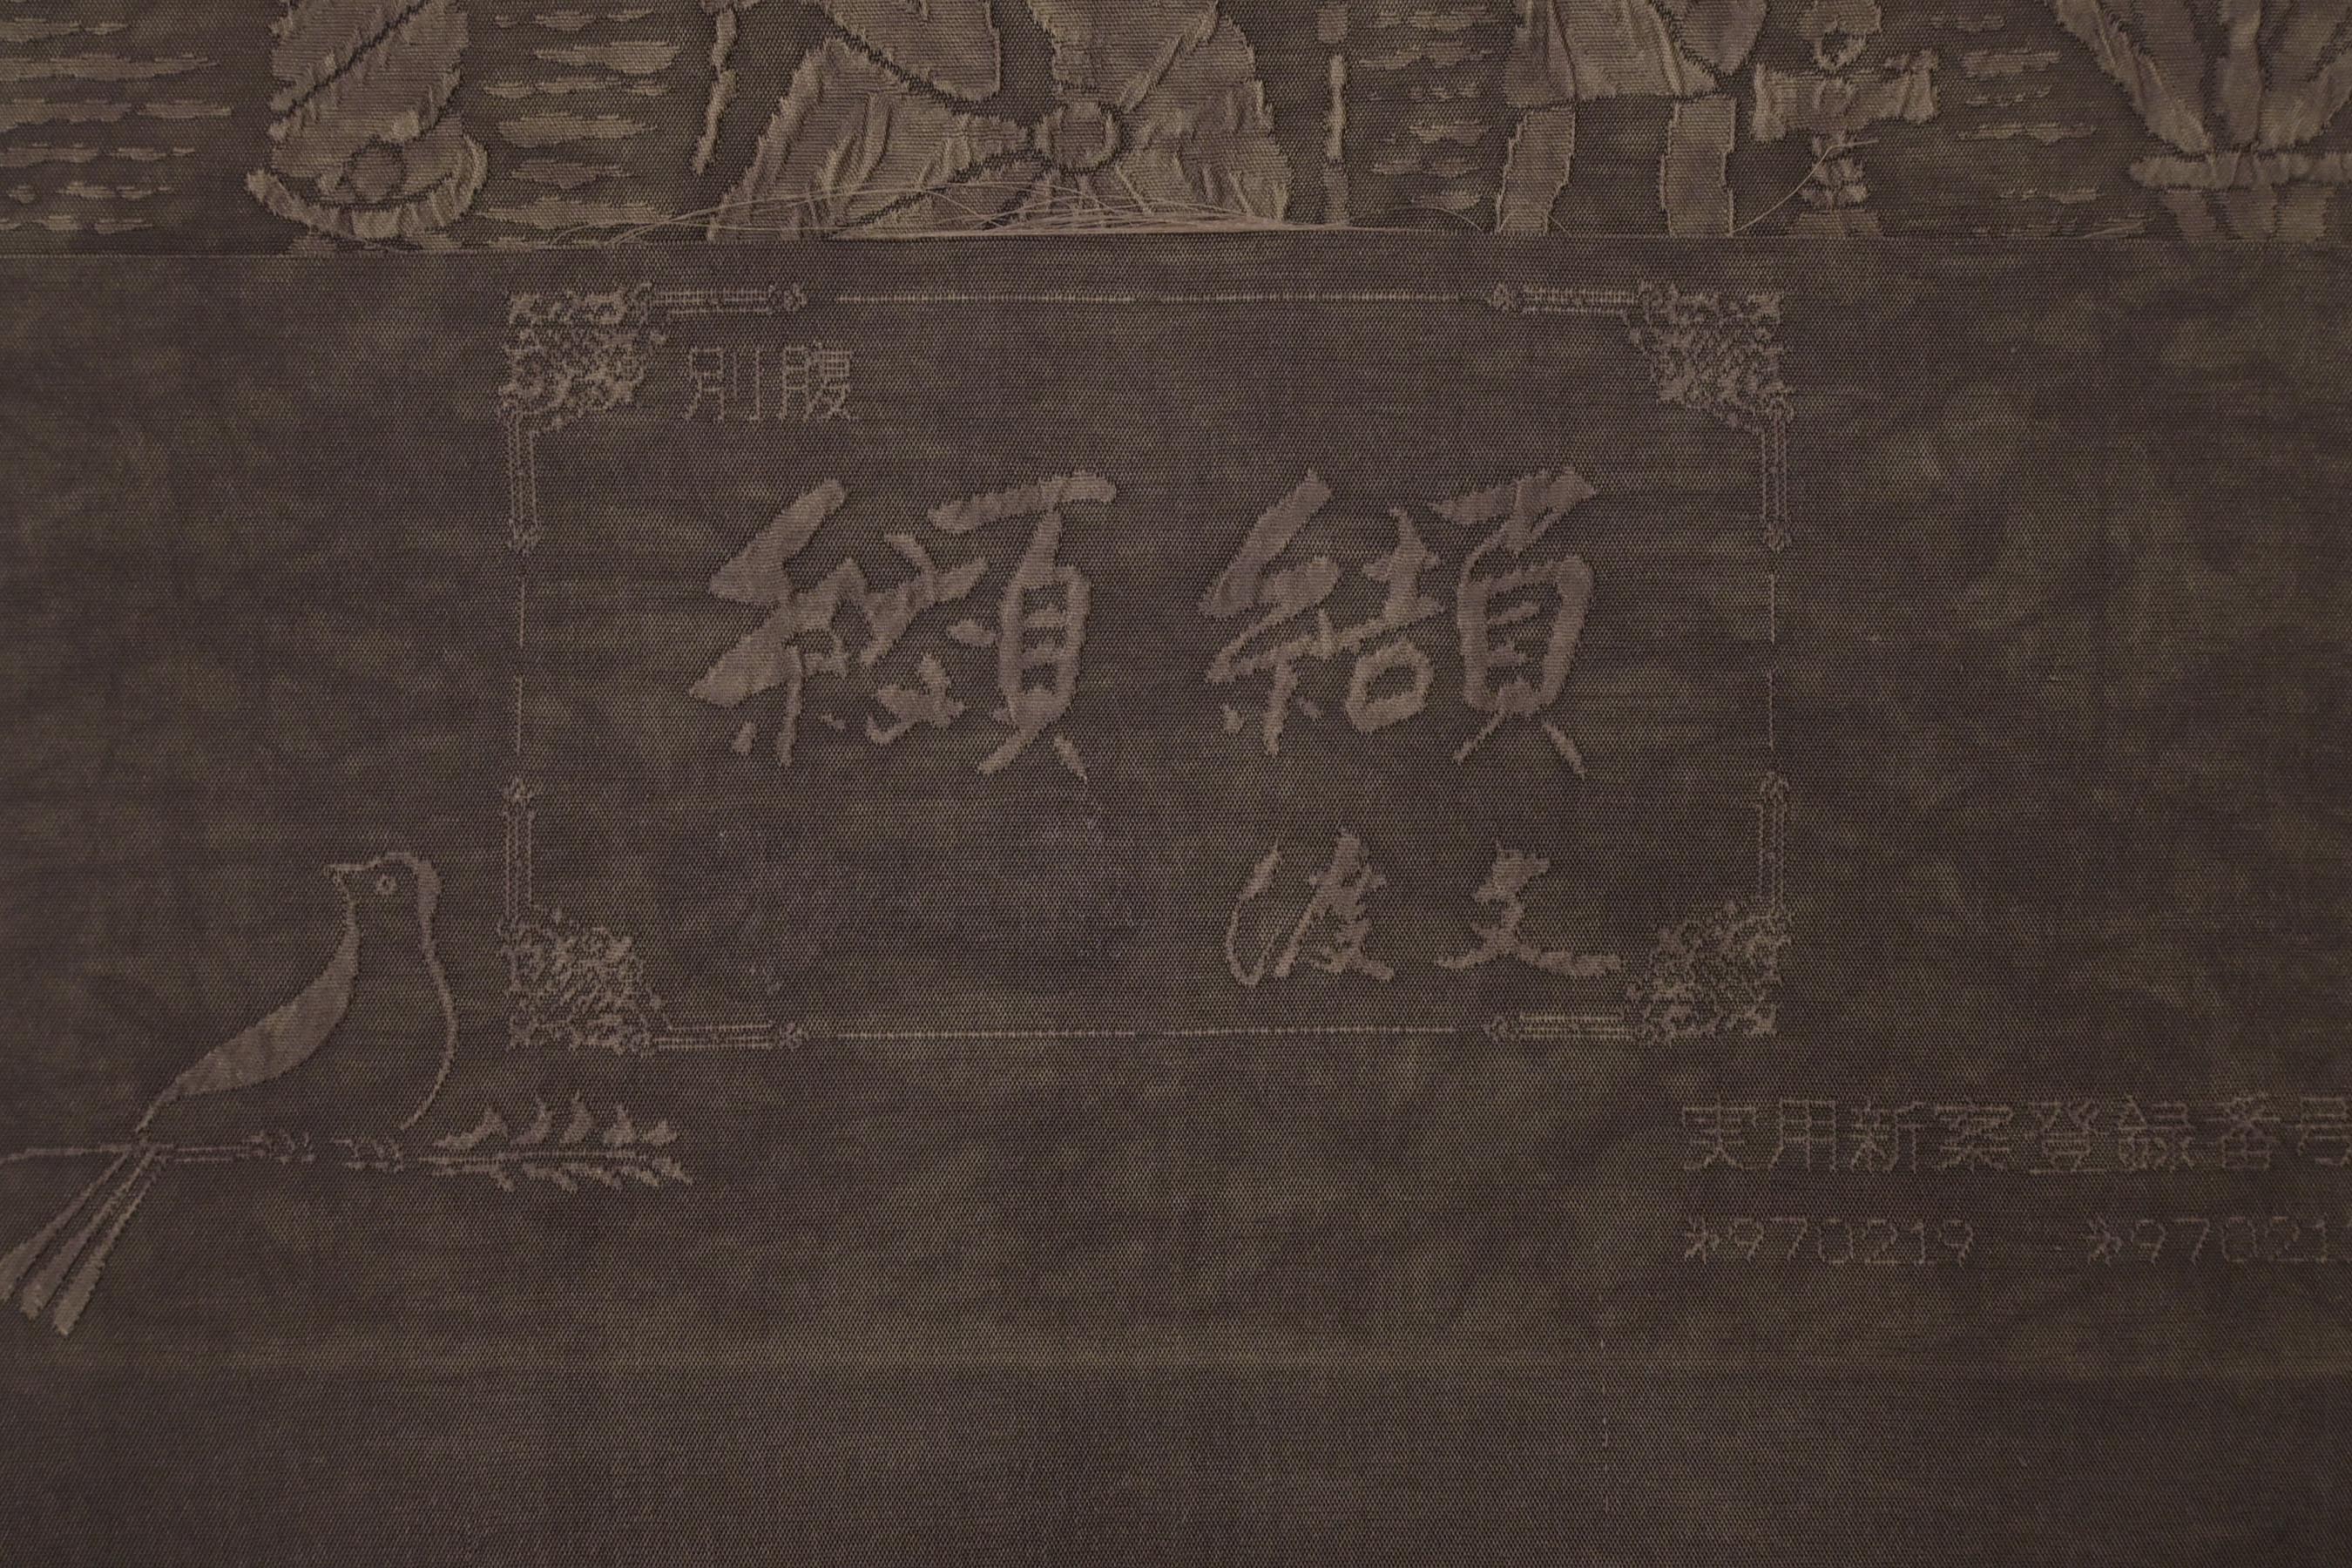 別腹
纐纈
文渡
実用新案登録番号
*970219 *97021